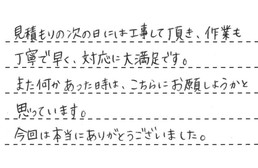 見積もりの次の日には工事して頂き、作業も
丁寧で早く、対応に大満足です。
また何かあった時は、こちらにお願しようかと
思っています。
今回は本当にありがとうございました。